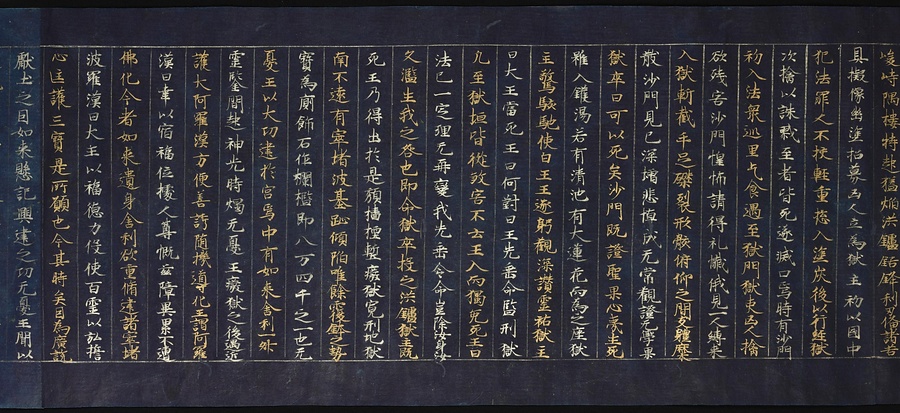 峻峙隅樓特起猛焰洪鑪銛鋒利刃俻諸苦
具擬像幽塗招募凶人立為獄主初以國中
犯法罪人不挍軽重揔入塗炭後以行經獄
次擒以誅戮至者皆死遂滅口焉時有沙門
初入法衆巡里乞食遇至獄門獄吏凶人擒
欲殘害沙門惶怖請得礼懺俄見一人縛来
入獄斬截手足磔裂形骸俯仰之間支體糜
散沙門見已深増悲悼成无常觀證无學果
獄卒曰可以死矣沙門既證聖果心夷生死
雖入鑊湯若有清池有大蓮花而為之座獄
主驚駭馳使白王王遂躬觀深讚靈祐獄主
曰大王當死王曰何對曰王先垂令監刑獄
凡至獄垣皆從敓害不云王入而獨免死王曰
法已一定理无再變我先垂令命豈除汝身汝
久濫生我之咎也即命獄卒投之洪鑪獄主既
死王乃得出於是頽墻堙塹癈獄寛刑地獄
南不遠有窣堵波基趾傾陷唯餘覆鉢之勢
寶為廁飾石作欄檻即八万四千之一也无
憂王以大功建於宮焉中有如来舍利一升
靈鑒間起神光時燭无憂王癈獄之後遇近
護大阿羅漢方便善誘随機導化王謂阿羅
漢曰幸以宿福位據人尊慨玆障異累不遭
佛化今者如来遺身舍利欲重脩建諸窣堵
波羅漢曰大王以福德力役使百靈以弘誓
心匡護三寶是所願也今其時矣因為廣說
獻土之因如来懸記興建之功无憂王聞以